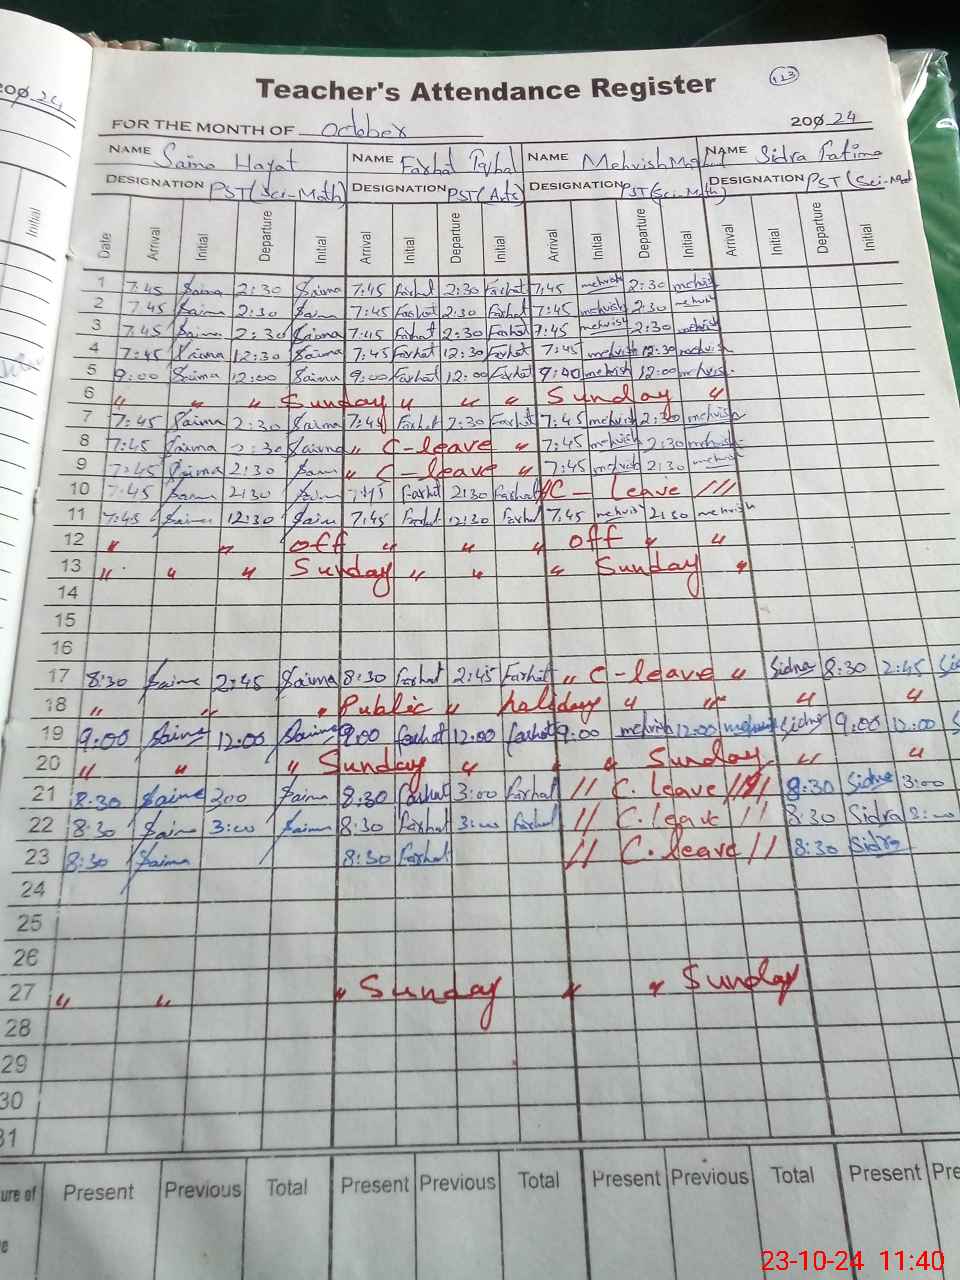 200 24
Teacher's Attendance Register
123
FOR THE MONTH OF October 200 24
NAME Saima Hayat NAME Farhat Iqbal NAME Mehvish NAME Sidra Fatima
DESIGNATION PST (Sci-Math) DESIGNATION PST (Arts) DESIGNATION PST (Sci-Math) DESIGNATION PST (Sci-Math
Initial Date Arrival Initial Departure Initial Arrival Initial Departure Initial Arrival Initial Departure Initial Arrival Initial Departure Initial
1 7:45 Saima 2:30 Saima 7:45 Farhat 2:30 Farhat 7:45 mehvish 2:30 mehvish
2 7:45 Saima 2:30 Saima 7:45 Farhat 2:30 Farhat 7:45 mehvish 2:30 mehvish
3 7:45 Saima 2:30 Saima 7:45 Farhat 2:30 Farhat 7:45 mehvish 2:30 mehvish
4 7:45 Saima 12:30 Saima 7:45 Farhat 12:30 Farhat 7:45 mehvish 12:30 mehvish
5 9:00 Saima 12:00 Saima 9:00 Farhat 12:00 Farhat 9:40 mehvish 12:00 mehvish
6 " " " Sunday " " " Sunday "
7 7:45 Saima 2:30 Saima 7:45 Farhat 2:30 Farhat 7:45 mehvish 2:30 mehvish
8 7:45 Saima 2:30 Saima " C-leave " 7:45 mehvish 2:30 mehvish
9 7:45 Saima 2:30 Saima " C-leave " 7:45 mehvish 2:30 mehvish
10 7:45 Saima 2:30 Saima 7:45 Farhat 2:30 Farhat // C-Leave ///
11 7:45 Saima 12:30 Saima 7:45 Farhat 12:30 Farhat 7:45 mehvish 2:30 mehvish
12 " " off " " " off " "
13 " " " Sunday " " " Sunday "
14
15
16
17 8:30 Saima 2:45 Saima 8:30 Farhat 2:45 Farhat " C-leave " Sidra 8:30 2:45 Si
18 " " " Public " holiday " " " "
19 9:00 Saima 12:00 Saima 9:00 Farhat 12:00 Farhat 9:00 mehvish 12:00 mehvish Sidra 9:00 12:00 S
20 " " " Sunday " " " Sunday " "
21 8:30 Saima 3:00 Saima 8:30 Farhat 3:00 Farhat // C. leave //// 8:30 Sidra 3:00
22 8:30 Saima 3:00 Saima 8:30 Farhat 3:00 Farhat // C. leave // 8:30 Sidra 3:00
23 8:30 Saima 8:30 Farhat // C. leave // 8:30 Sidra
24
25
26
27 " " " Sunday " " Sunday
28
29
30
31
ure of Present Previous Total Present Previous Total Present Previous Total Present Pre
e
23-10-24 11:40